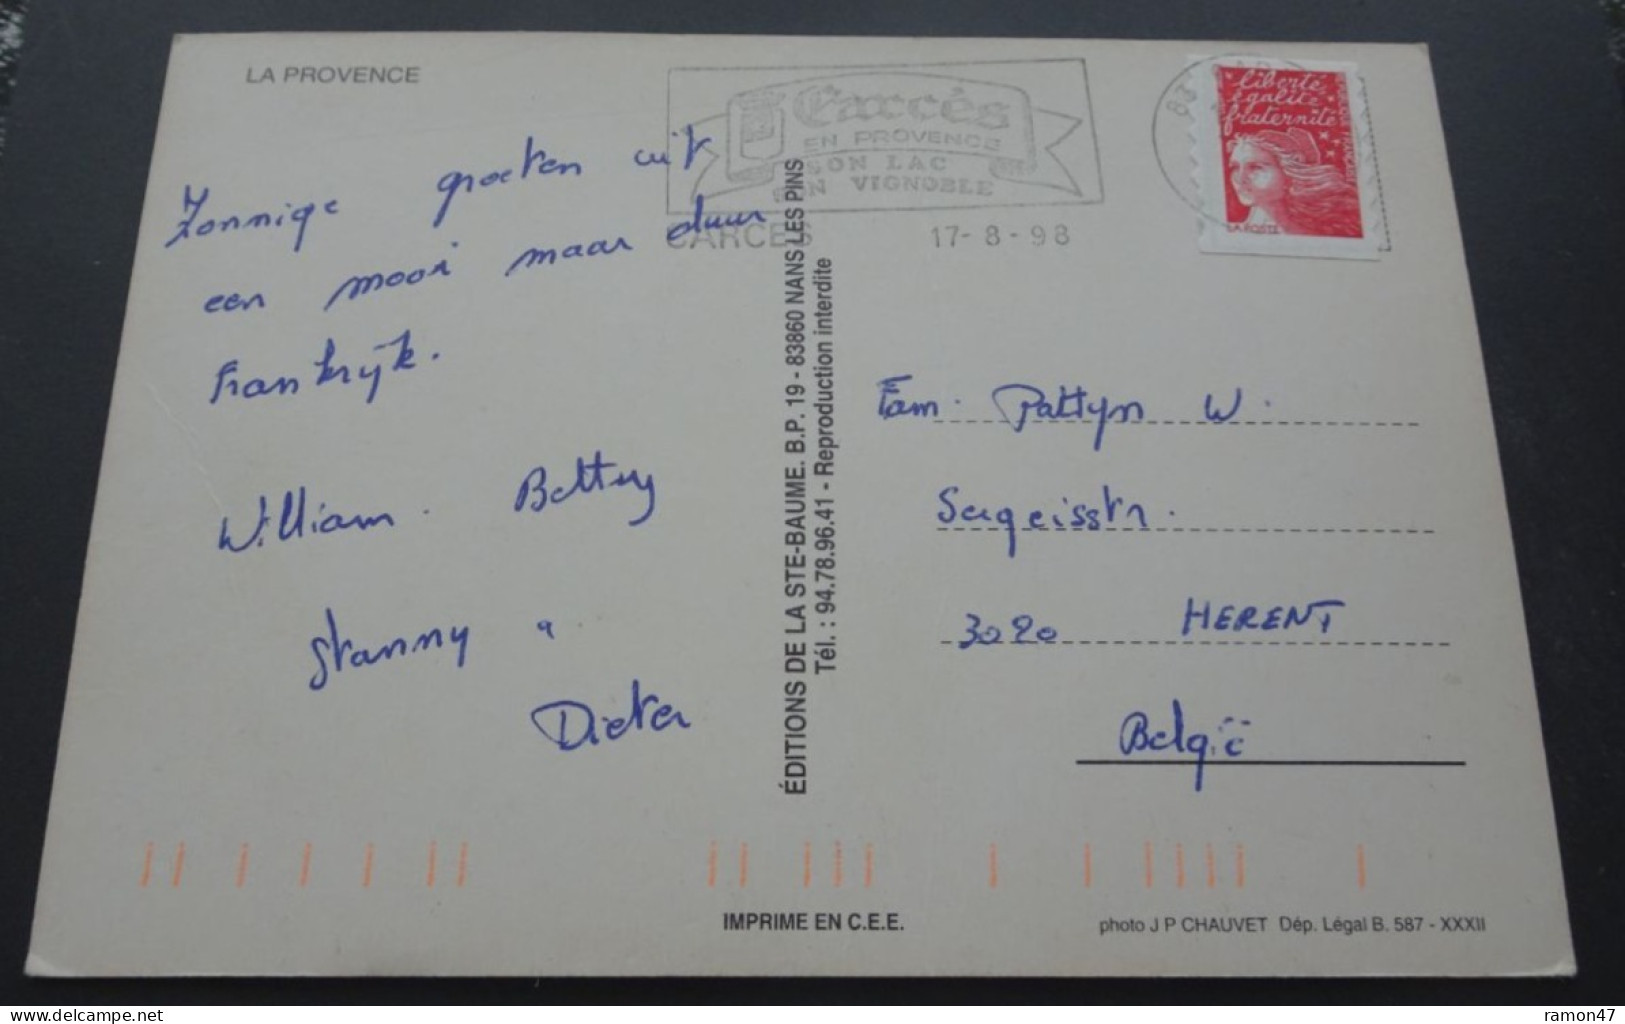 LA PROVENCE
Zonnige groeten uit
een mooi maar duur
Frankrijk.
William. Bettny
Stanny &
Dieter
Carcès
EN PROVENCE
SON LAC
SON VIGNOBLE
CARCES
17-8-98
83
liberté
égalité
fraternité
LA POSTE
ÉDITIONS DE LA STE-BAUME. B.P. 19 - 83860 NANS LES PINS
Tél. : 94.78.96.41 - Reproduction interdite
Fam. Pattyn W.
3020 HERENT
België
IMPRIME EN C.E.E.
photo J P CHAUVET Dép. Légal B. 587 - XXXII
delcampe.net
ramon47